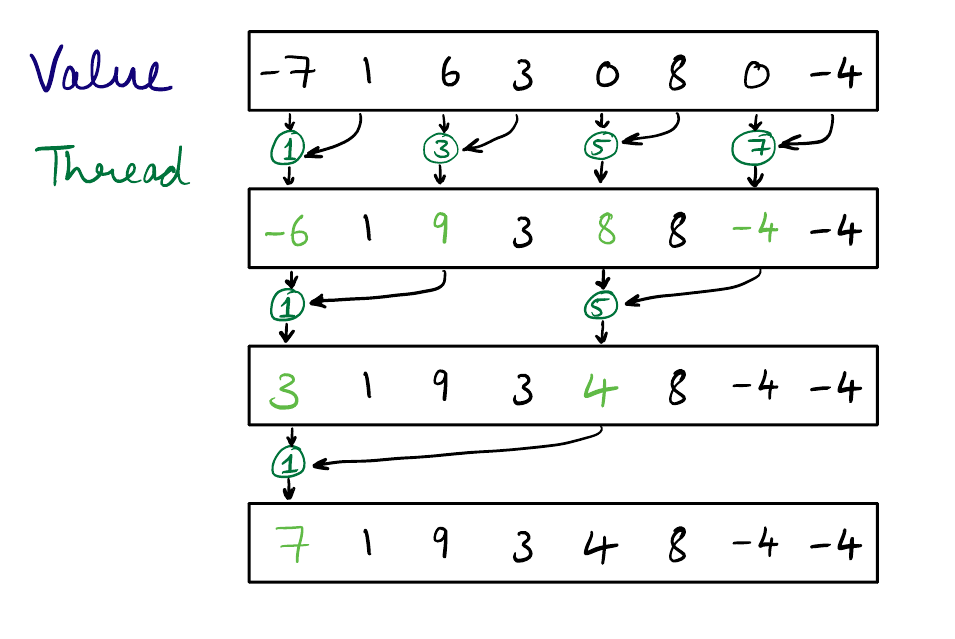 Value -7 1 6 3 0 8 0 -4
Thread 1 3 5 7
-6 1 9 3 8 8 -4 -4
1 5
3 1 9 3 4 8 -4 -4
1
7 1 9 3 4 8 -4 -4